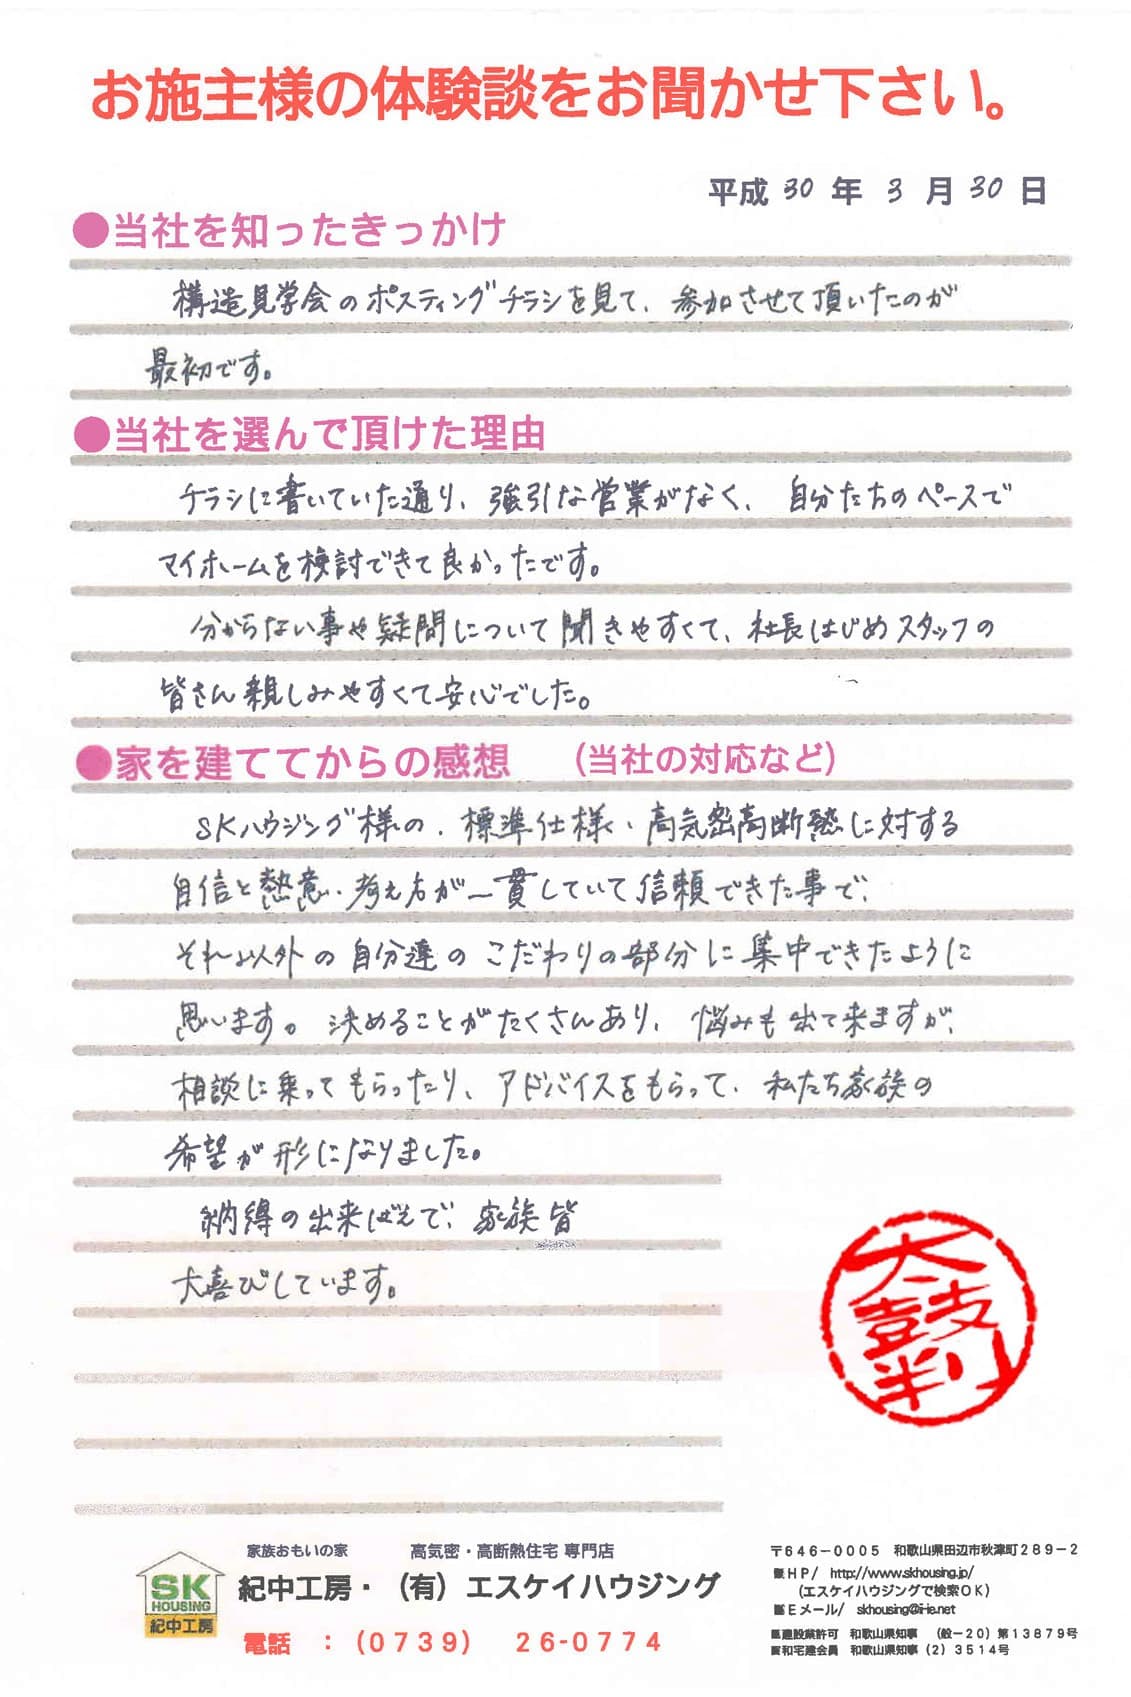 お施主様の体験談をお聞かせ下さい。
平成 30 年 3 月 30 日
●当社を知ったきっかけ
構造見学会のポスティングチラシを見て、参加させて頂いたのが
最初です。
●当社を選んで頂けた理由
チラシに書いていた通り、強引な営業がなく、自分たちのペースで
マイホームを検討できて良かったです。
分からない事や疑問について聞きやすくて、社長はじめスタッフの
皆さん親しみやすくて安心でした。
●家を建ててからの感想 （当社の対応など）
SKハウジング様の、標準仕様、高気密高断熱に対する
自信と熱意、考え方が一貫していて信頼できた事で、
それ以外の自分達のこだわりの部分に集中できたように
思います。決めることがたくさんあり、悩みも出て来ますが、
相談に乗ってもらったり、アドバイスをもらって、私たち家族の
希望が形になりました。
納得の出来ばえで、家族皆
大喜びしています。
太鼓判
SK
HOUSING
紀中工房
家族おもいの家 高気密・高断熱住宅 専門店
紀中工房・（有）エスケイハウジング
電話 ：（0739） 26-0774
〒646－0005 和歌山県田辺市秋津町289－2
HP/ http://www.skhousing.jp/
（エスケイハウジングで検索OK）
Eメール/ skhousing@i-ie.net
建設業許可 和歌山県知事 （般－20）第13879号
和宅建会員 和歌山県知事（2）3514号